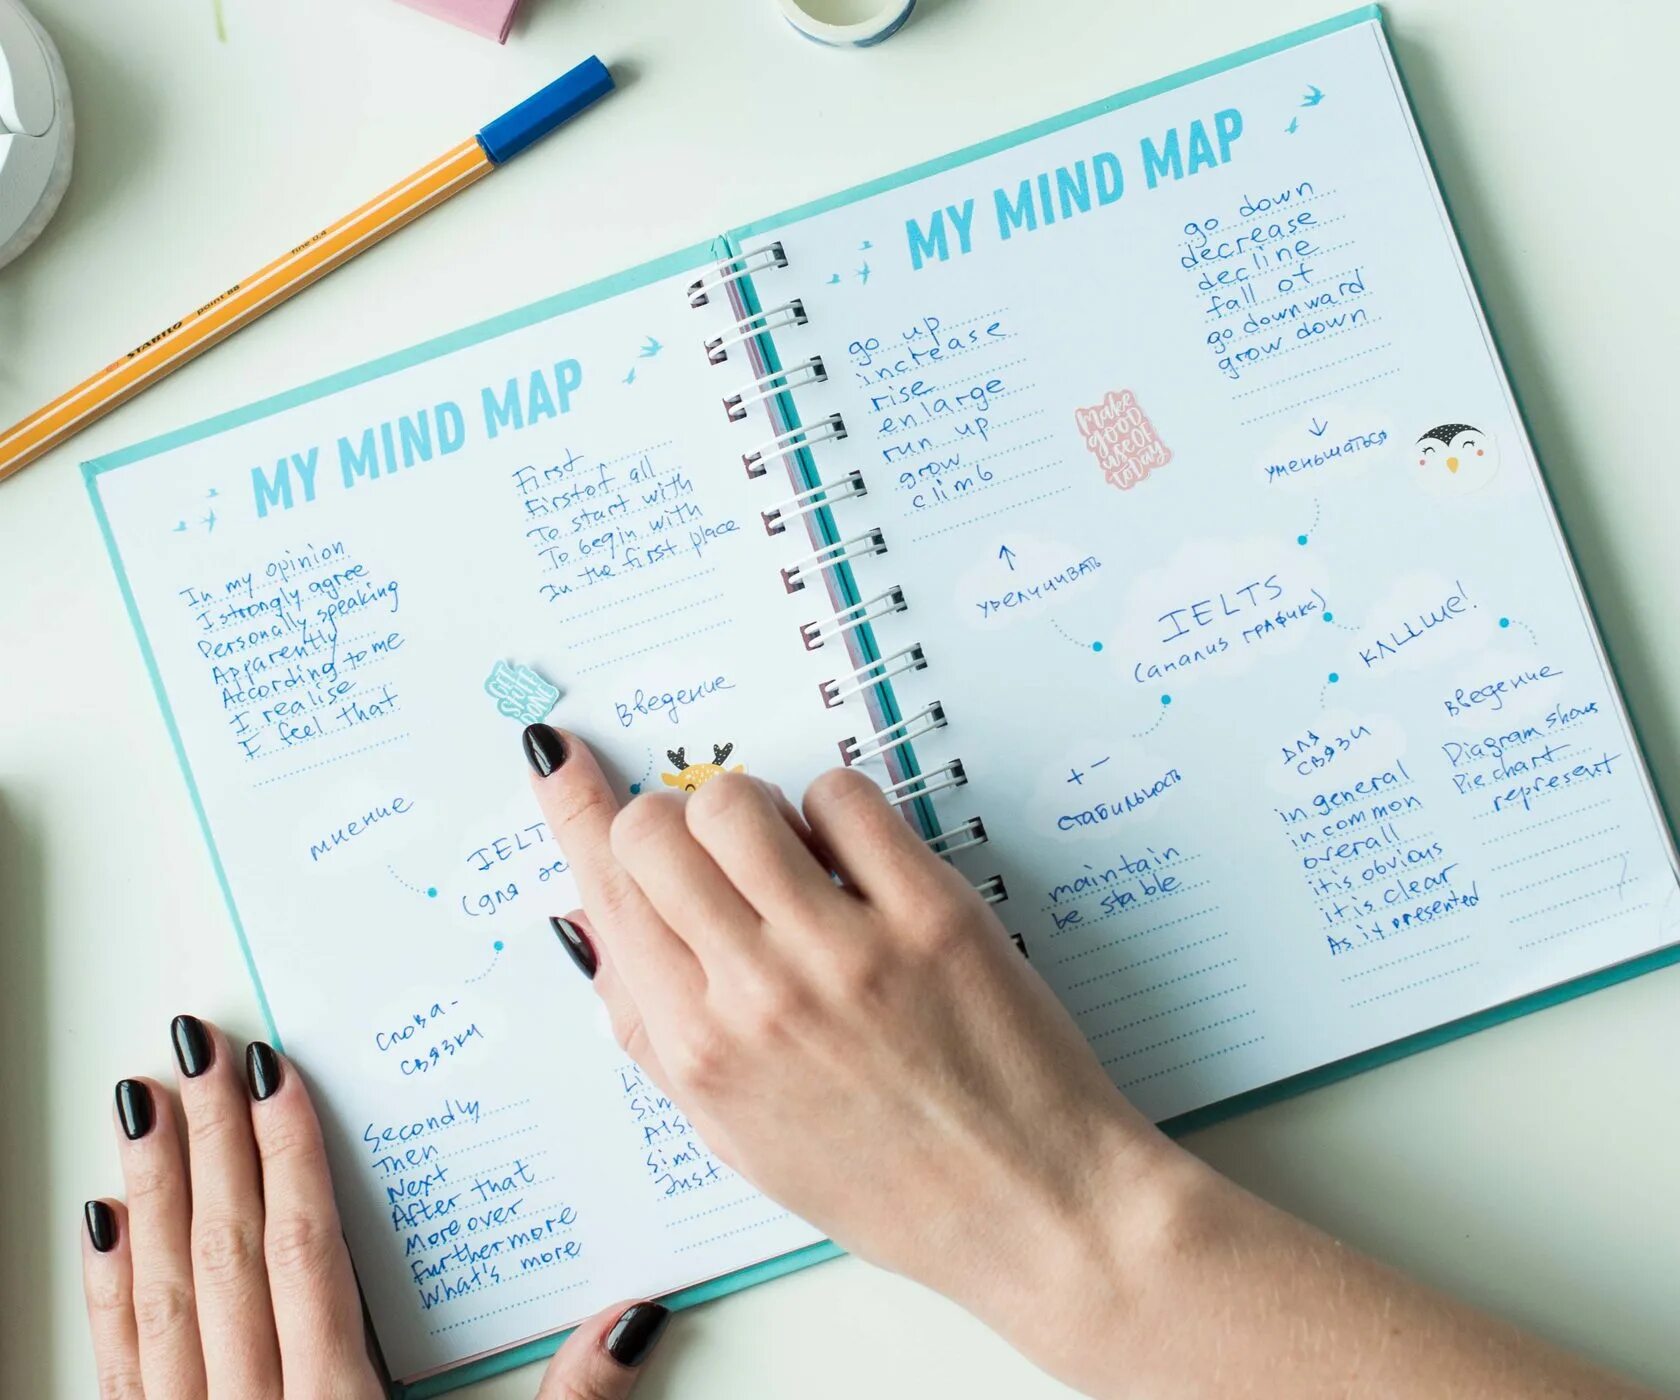 STABILO point 88 fine 0,4
MY MIND MAP
In my opinion
I strongly agree
Personally speaking
Apparently
According to me
I realise
I feel that
First
First of all
To start with
To begin with
In the first place
GET
SHIT
DONE
Введение
мнение
IELT
(для эс
слова-
связки
Secondly
Then
Next
After that
Moreover
Furthermore
What's more
Li
Sim
Als
Simi
Just
MY MIND MAP
go up
increase
rise
enlarge
run up
grow
climb
go down
decrease
decline
fall of
go downward
grow down
make
good
use of
today
↑
увеличивать
↓
уменьшаться
IELTS
(анализ графика)
клише!
+ -
стабильность
maintain
be stable
для
связи
in general
in common
overall
it is obvious
it is clear
As it presented
введение
Diagram shows
Pie chart
represent